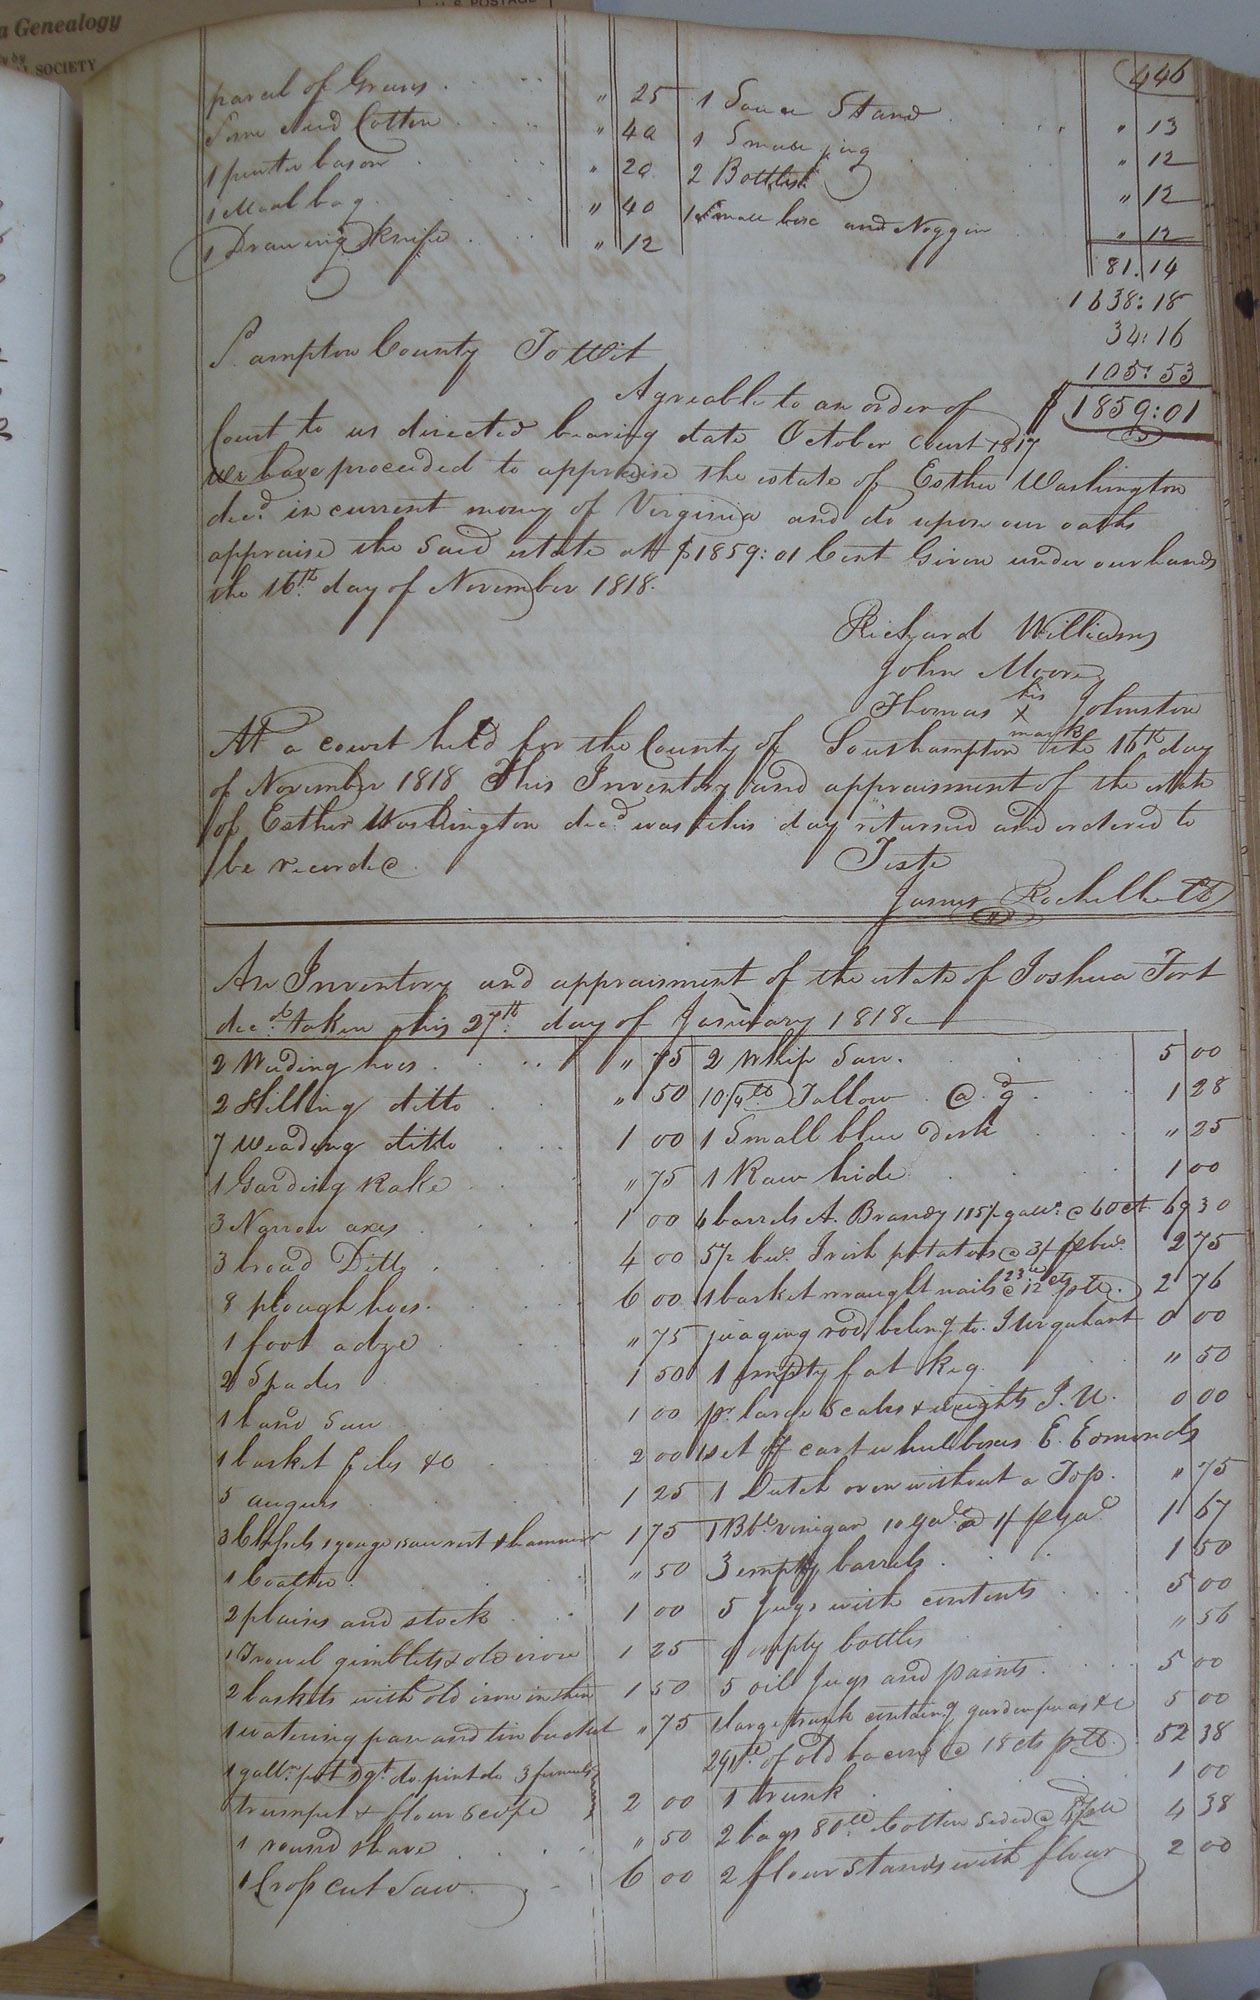 a Genealogy
SOCIETY
U.S. POSTAGE
446
parcel of " 25 1 Stand " 13
Some seed Cotton " 40 1 Small jug " 12
1 pewter bason " 20 2 Bottles " 12
1 Meal bag " 40 1 Small box and Noggin " 12
1 Drawing knife " 12
81.14
1638:18
34:16
105:53
$ 1859:01
S. ampton County To Wit
Agreable to an order of
Court to us directed bearing date October Court 1817
We have proceeded to appraise the estate of Esther Washington
decd. in current money of Virginia and do upon our oaths
appraise the said estate at $1859:01 Cent Given under our hands
the 16th day of November 1818.
Richard Williams
John Moore
his
Thomas x Johnston
mark
At a court held for the County of Southampton the 16th day
of November 1818 This Inventory and appraisment of the estate
of Esther Washington decd. was this day returned and ordered to
be recorded
Teste
James Rochelle
An Inventory and appraisment of the estate of Joshua Fort
decd. taken this 27th day of January 1818
2 Weeding hoes " 75 2 Whip Saw. 5 00
2 Hilling ditto " 50 10 1/4 lb Tallow @ 9d 1 28
7 Weading ditto 1 00 1 Small blue Desk " 25
1 Garding Rake " 75 1 Raw hide 1 00
3 Narrow axes 1 00 4 barrels A. Brandy 115 1/2 galls. @ 60 ct 69 30
3 broad Ditto 4 00 5 1/2 bus. Irish potatoes @ 3/ p bus. 2 75
8 plough hoes 6 00 1 basket wraught nails 23 lb @ 12 cts p lb. 2 76
1 foot adze " 75 juaging rod belong to J Urquhart 0 00
2 Spades 1 50 1 empty fat keg " 50
1 hand Saw 1 00 pr large Scales & weights J. U. 0 00
1 basket files &c 2 00 1 set of cart wheel boxes E. Edmunds
5 augurs 1 25 1 Dutch oven without a Top. " 75
3 Chissels 1 gouge 1 saw rest & hammer 1 75 1 Bbl vinigar 10 gal. @ 1/ p gal 1 67
1 Coalter " 50 3 empty barrels 1 50
2 plains and stock 1 00 5 Jugs with contents 5 00
1 Trowel gimblets & old iron 1 25 9 empty bottles " 56
2 baskets with old iron in them 1 50 5 oil Jugs and paints 5 00
1 watering pan and tin bucket " 75 1 large trunk containg garden peas &c 5 00
1 galln. pot 1 qt. do. pint do 3 funnels 291 lb of old bacon @ 18 cts p lb. 52 38
trumpet & flour Scope 2 00 1 trunk 1 00
1 round shave " 50 2 bags 80 lb Cotton Seded @ 4 38
1 Cross cut Saw 6 00 2 flour Stands with flour 2 00